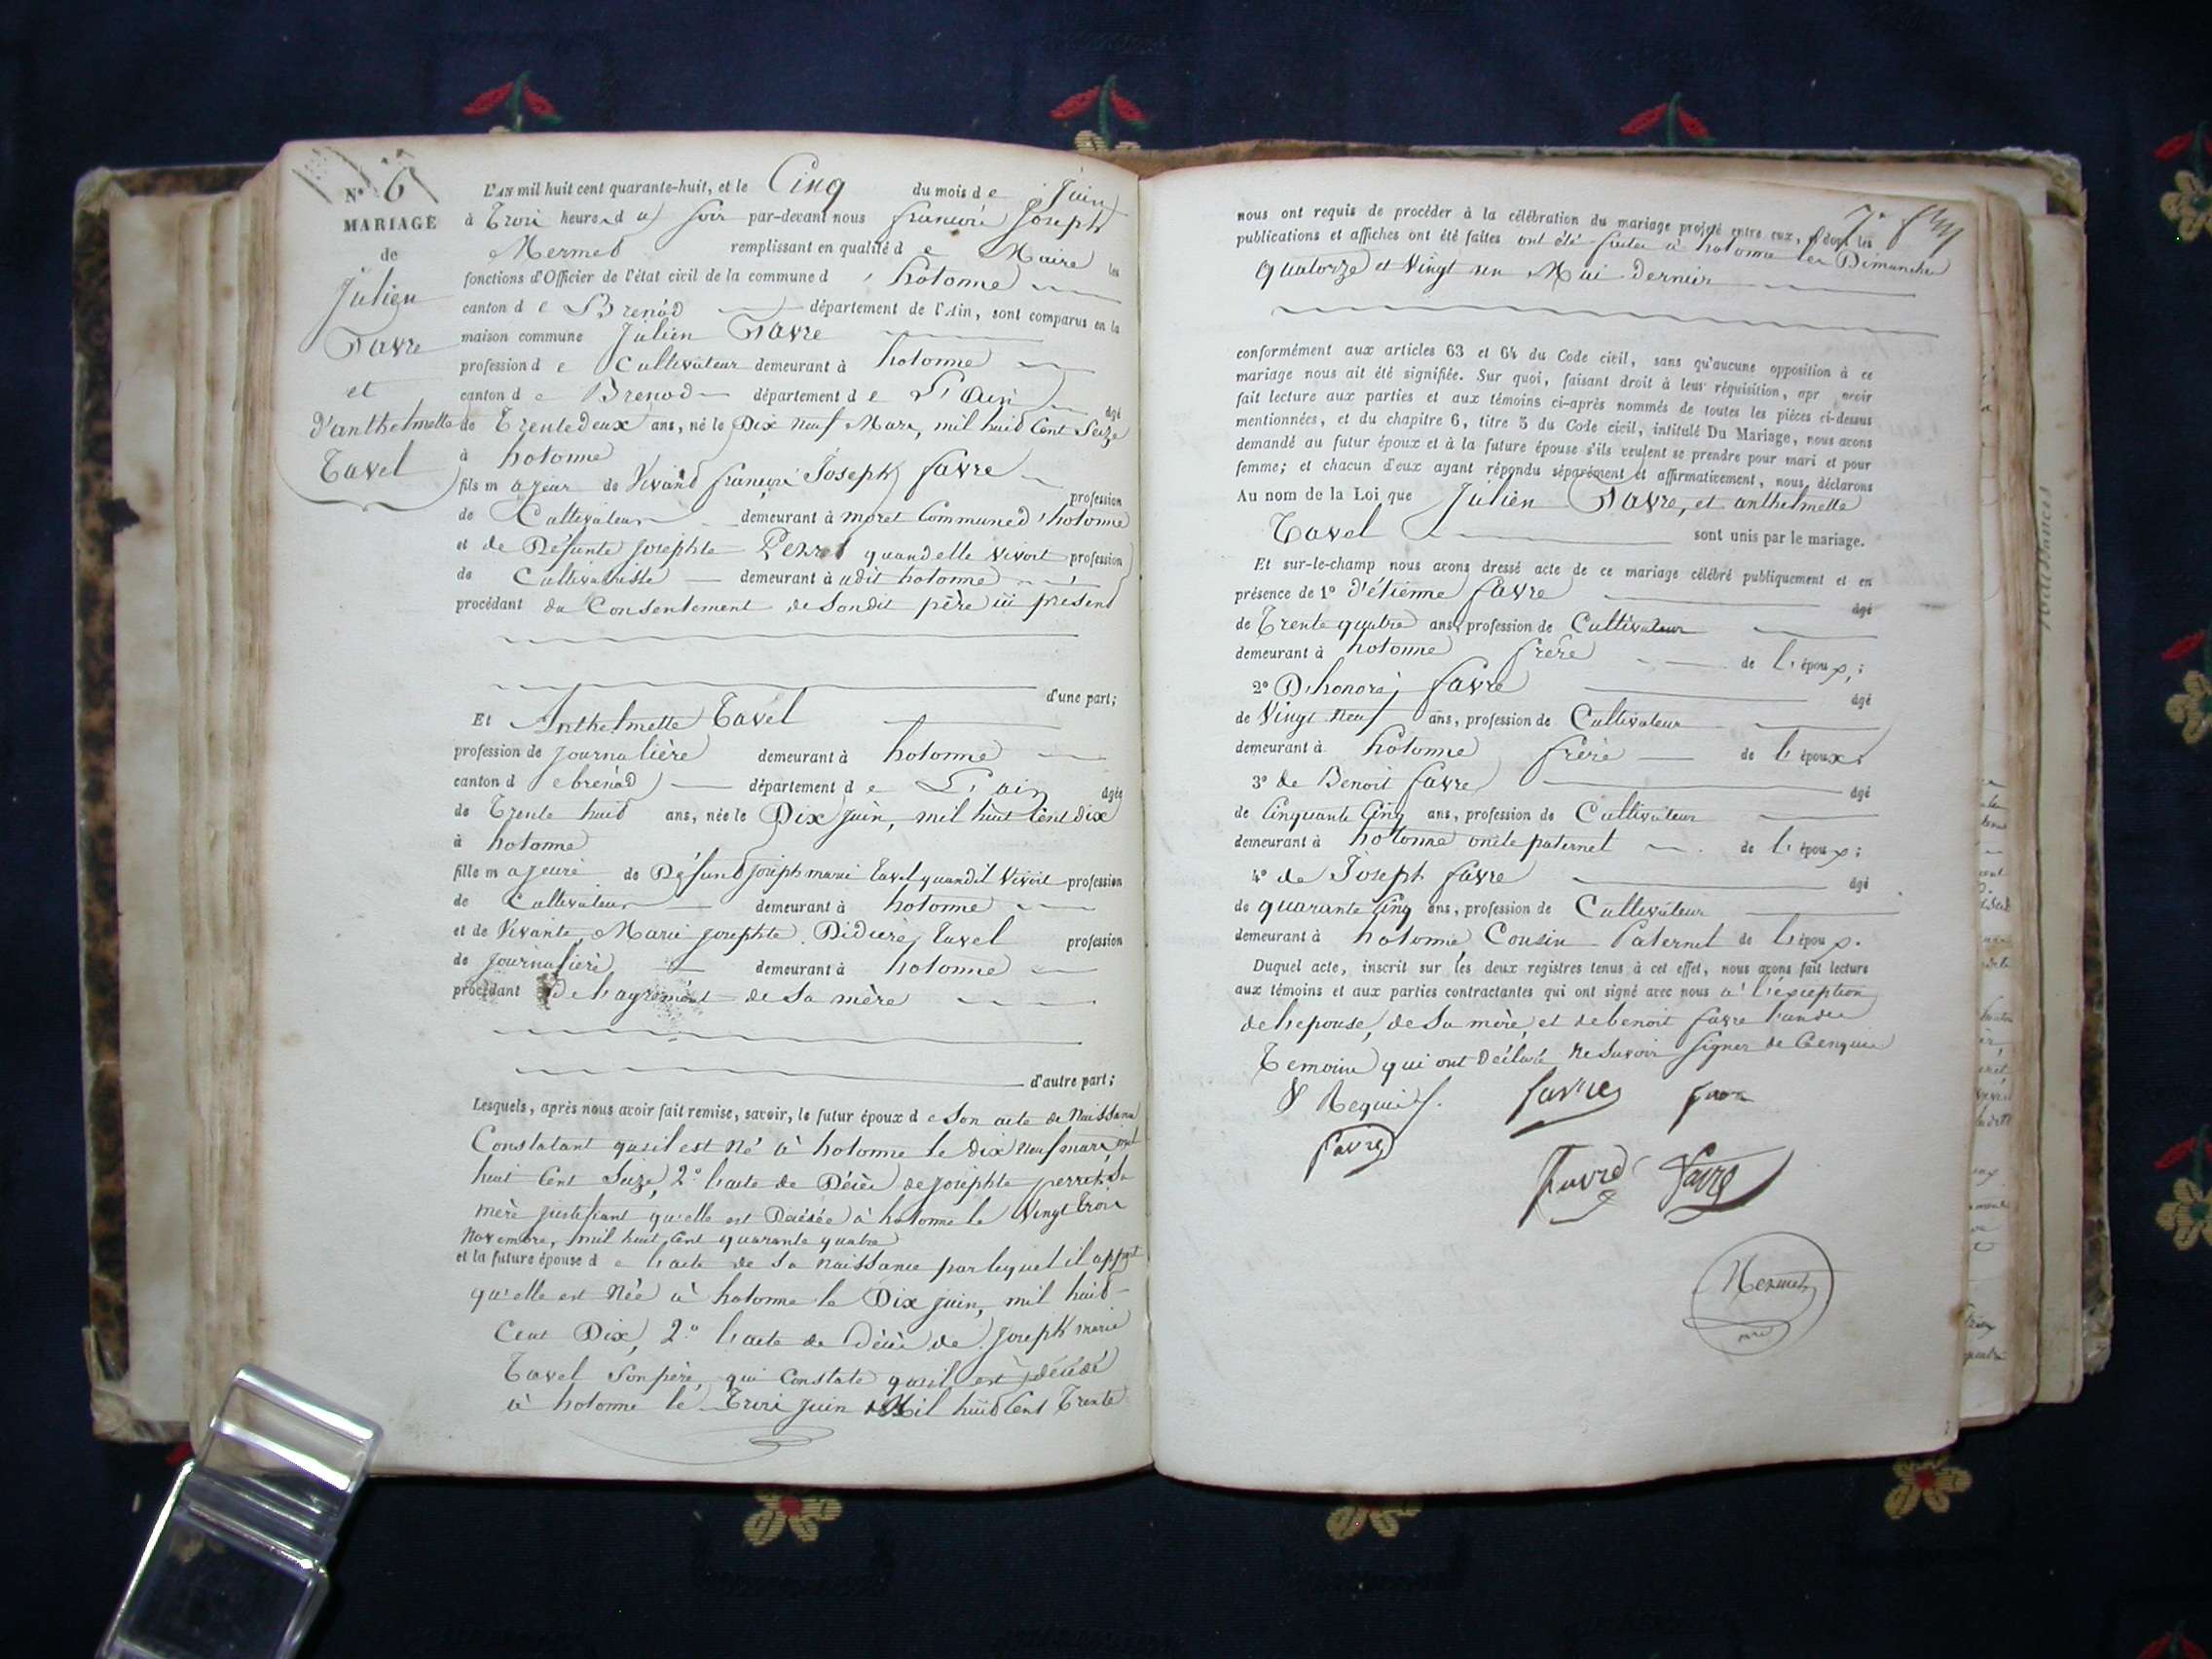 N° 6
MARIAGE
de
Julien
Favre
et
d'anthelmette
Tavel
L'AN mil huit cent quarante-huit, et le Cinq du mois de Juin
à Trois heures du soir par-devant nous françois Joseph
Mermet remplissant en qualité de Maire les
fonctions d'Officier de l'état civil de la commune d'hotonne
canton de Brenod département de l'Ain, sont comparus en la
maison commune Julien Favre
profession de Cultivateur demeurant à hotonne
canton de Brenod département de L'ain âgé
de Trente deux ans, né le Dix neuf Mars, mil huit Cent Seize
à hotonne
fils majeur de Vivant françois Joseph favre profession
de Cultivateur demeurant à moret Commune d'hotonne
et de Défunte josephte Perret quand elle vivoit profession
de Cultivatriste demeurant à udit hotonne
procédant du Consentement de Son dit père ici présent
d'une part;
Et Anthelmette Tavel
profession de journalière demeurant à hotonne
canton de brenod département de L'ain âgée
de Trente huit ans, née le Dix juin, mil huit Cent dix
à hotonne
fille majeure de Défunt joseph marie tavel quand il Vivoit profession
de Cultivateur demeurant à hotonne
et de Vivante Marie josephte Didière tavel profession
de journalière demeurant à hotonne
procédant de l'agrement de Sa mère
d'autre part;
Lesquels, après nous avoir fait remise, savoir, le futur époux de Son acte de Naissance
Constatant qu'il est Né à hotonne le dix neuf mars mil
huit Cent Seize, 2° l'acte de Décès de josephte perret Sa
mère justifiant qu'elle est Décédée à hotonne le Vingt trois
Novembre, mil huit Cent quarante quatre
et la future épouse de l'acte de Sa Naissance par lequel il appt
qu'elle est Née à hotonne le Dix juin, mil huit
Cent Dix, 2° l'acte de Décès de joseph marie
Tavel Son père, qui Constate qu'il est décédé
à hotonne le Trois juin Mil huit Cent Trente
nous ont requis de procéder à la célébration du mariage projeté entre eux, et dont les
publications et affiches ont été faites ont été faites à hotonne les Dimanches
Quatorze et Vingt un Mai dernier
conformément aux articles 63 et 64 du Code civil, sans qu'aucune opposition à ce
mariage nous ait été signifiée. Sur quoi, faisant droit à leur réquisition, apr avoir
fait lecture aux parties et aux témoins ci-après nommés de toutes les pièces ci-dessus
mentionnées, et du chapitre 6, titre 5 du Code civil, intitulé Du Mariage, nous avons
demandé au futur époux et à la future épouse s'ils veulent se prendre pour mari et pour
femme; et chacun d'eux ayant répondu séparément et affirmativement, nous déclarons
Au nom de la Loi que Julien Favre, et anthelmette
Tavel sont unis par le mariage.
Et sur-le-champ nous avons dressé acte de ce mariage célébré publiquement et en
présence de 1° d'étienne favre âgé
de Trente quatre ans, profession de Cultivateur
demeurant à hotonne frère de l'époux;
2° D'honoré favre âgé
de Vingt Neuf ans, profession de Cultivateur
demeurant à hotonne frère de l'époux
3° de Benoit favre âgé
de Cinquante Cinq ans, profession de Cultivateur
demeurant à hotonne oncle paternel de l'époux;
4° de Joseph favre âgé
de quarante Cinq ans, profession de Cultivateur
demeurant à hotonne Cousin Paternel de l'époux.
Duquel acte, inscrit sur les deux registres tenus à cet effet, nous avons fait lecture
aux témoins et aux parties contractantes qui ont signé avec nous à l'exception
de l'epouse, de Sa mère, et de benoit favre l'un des
Temoins qui ont Déclaré ne Savoir Signer de Cenquis
& Requis.
favre
favre
favre
favre
favre
Mermet